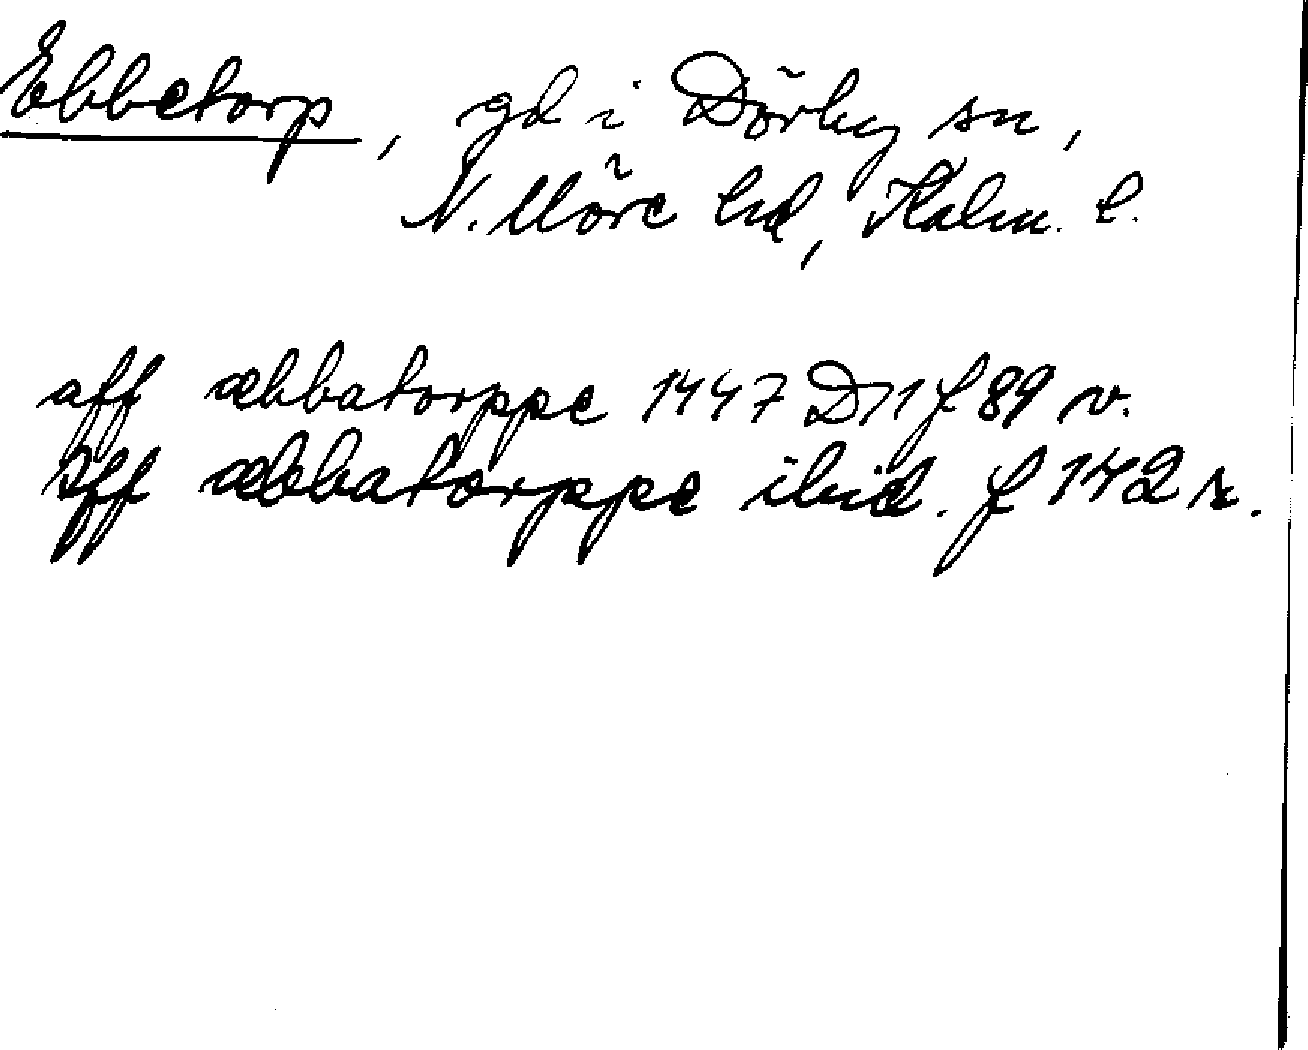 Ebbetorp, gd i Dörby sn,
N. Möre hd, Kalm. l.
aff æbbatorppe 1447 D11 f 89 v.
aff æbbatorppe ibid. f 142 r.